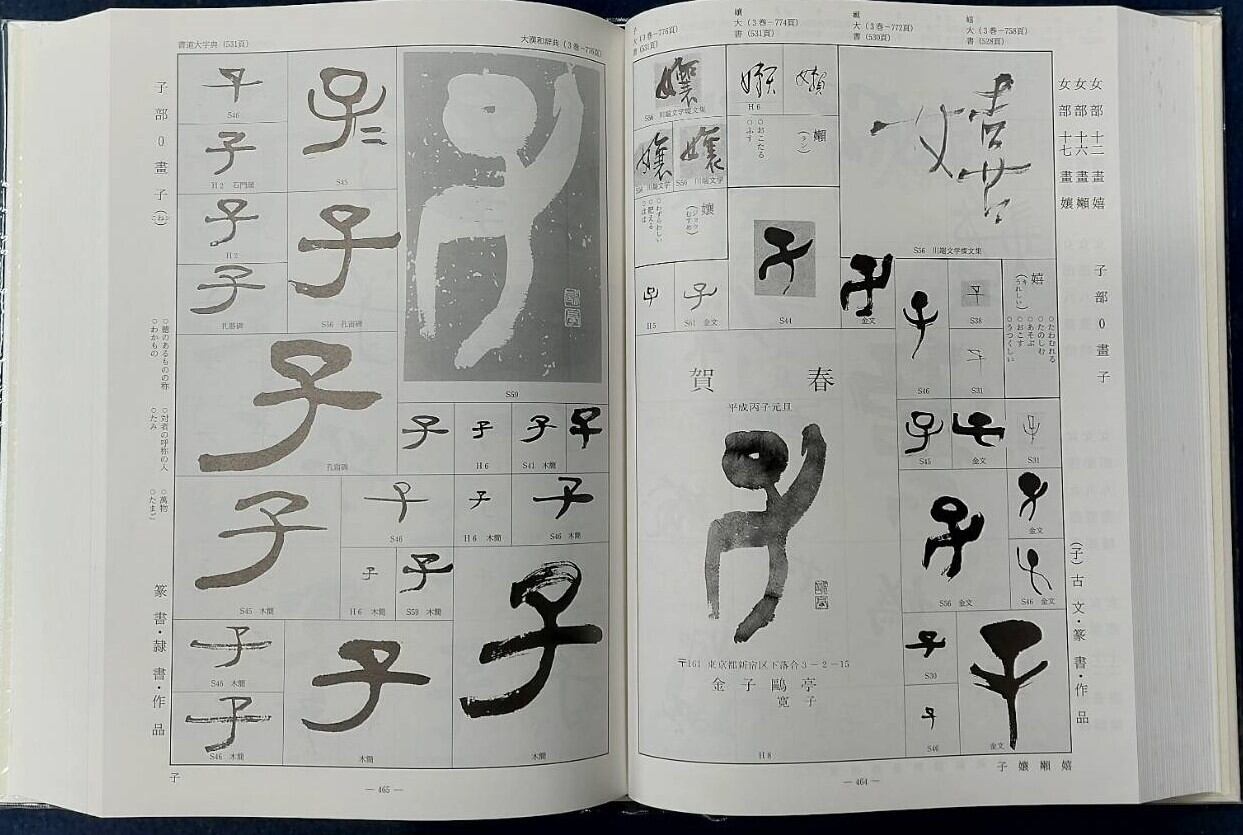 嬉
大（3巻－758頁）
書（528頁）
嬾
大（3巻－772頁）
書（530頁）
孃
大（3巻－774頁）
書（531頁）
子
大（3巻－776頁）
書（531頁）
女部 十二畫 嬉
女部 十六畫 嬾
女部 十七畫 孃
子部 0畫 子
（子）古文・篆書・作品
嬉
S56 川端文学碟文集
嬉
（うれしい）
○たわむれる
○たのしむ
○あそぶ
○おこす
○うつくしい
S38
S31
S46
金文
S31
金文
S45
金文
S46 金文
S56 金文
S30
S46
金文
嬾 嬾
H6
嬾
（ラン）
○おこたる
○ふす
孃
S56 川端文学碟文集
孃 孃
S56 川端文学
孃
（ジョウ）
（むすめ）
○わずらわしい
○肥える
○はは
子
S44
H5
S61 金文
賀春
平成丙子元旦
〒161 東京都新宿区下落合3－2－15
金子鷗亭
寛子
H8
子 孃 嬾 嬉
— 464 —
書道大字典（531頁）
大漢和辞典（3巻－776頁）
子部 0畫 子（ね）
○徳のあるものの称
○わかもの
○対者の呼称の人
○たみ
○萬物
○たまご
篆書・隷書・作品
子
S46
子
S45
S59
子
H2 石門頌
子
H2
子
S56 孔宙碑
子
孔宙碑
子
孔宙碑
子
子
H6
子
S41 木簡
子
子
S45 木簡
子
S46
子
H6 木簡
子
S46 木簡
子
H6 木簡
子
S59 木簡
子
木簡
子
S46 木簡
子
S46 木簡
子
木簡
子
— 465 —